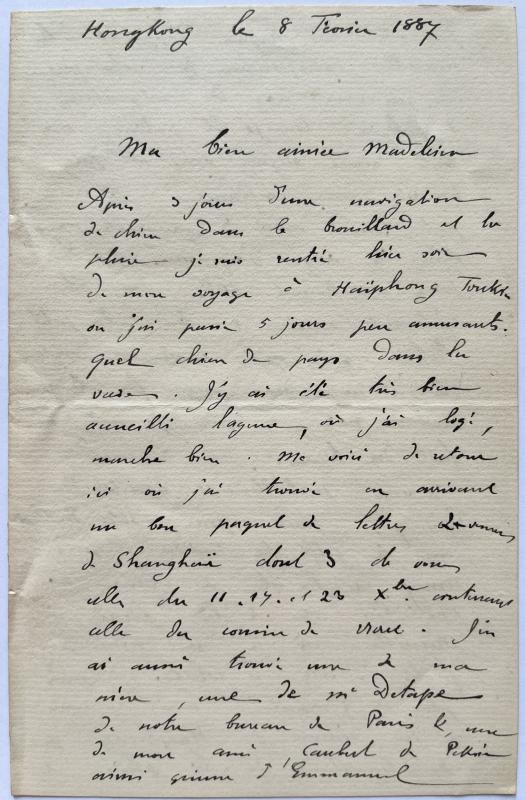 HongKong le 8 Février 1887
Ma bien aimée Madeleine
Après 3 jours d'une navigation
de chien dans le brouillard et la
pluie je suis rentré hier soir
de mon voyage à Haïphong Tonkin
où j'ai passé 5 jours peu amusants.
quel chien de pays dans la
vase. J'y ai été très bien
accueilli l'agence, où j'ai logé,
marche bien. Me voici de retour
ici où j'ai trouvé en arrivant
un bon paquet de lettres venues
de Shanghaï dont 3 de vous
celle du 11. 17. et 23 Xbre contenant
celle du cousin de . J'en
ai aussi trouvé une de ma
mère, une de Mr Detape
de notre bureau de Paris, une
de mon ami de Pékin
ainsi qu'une d'Emmanuel